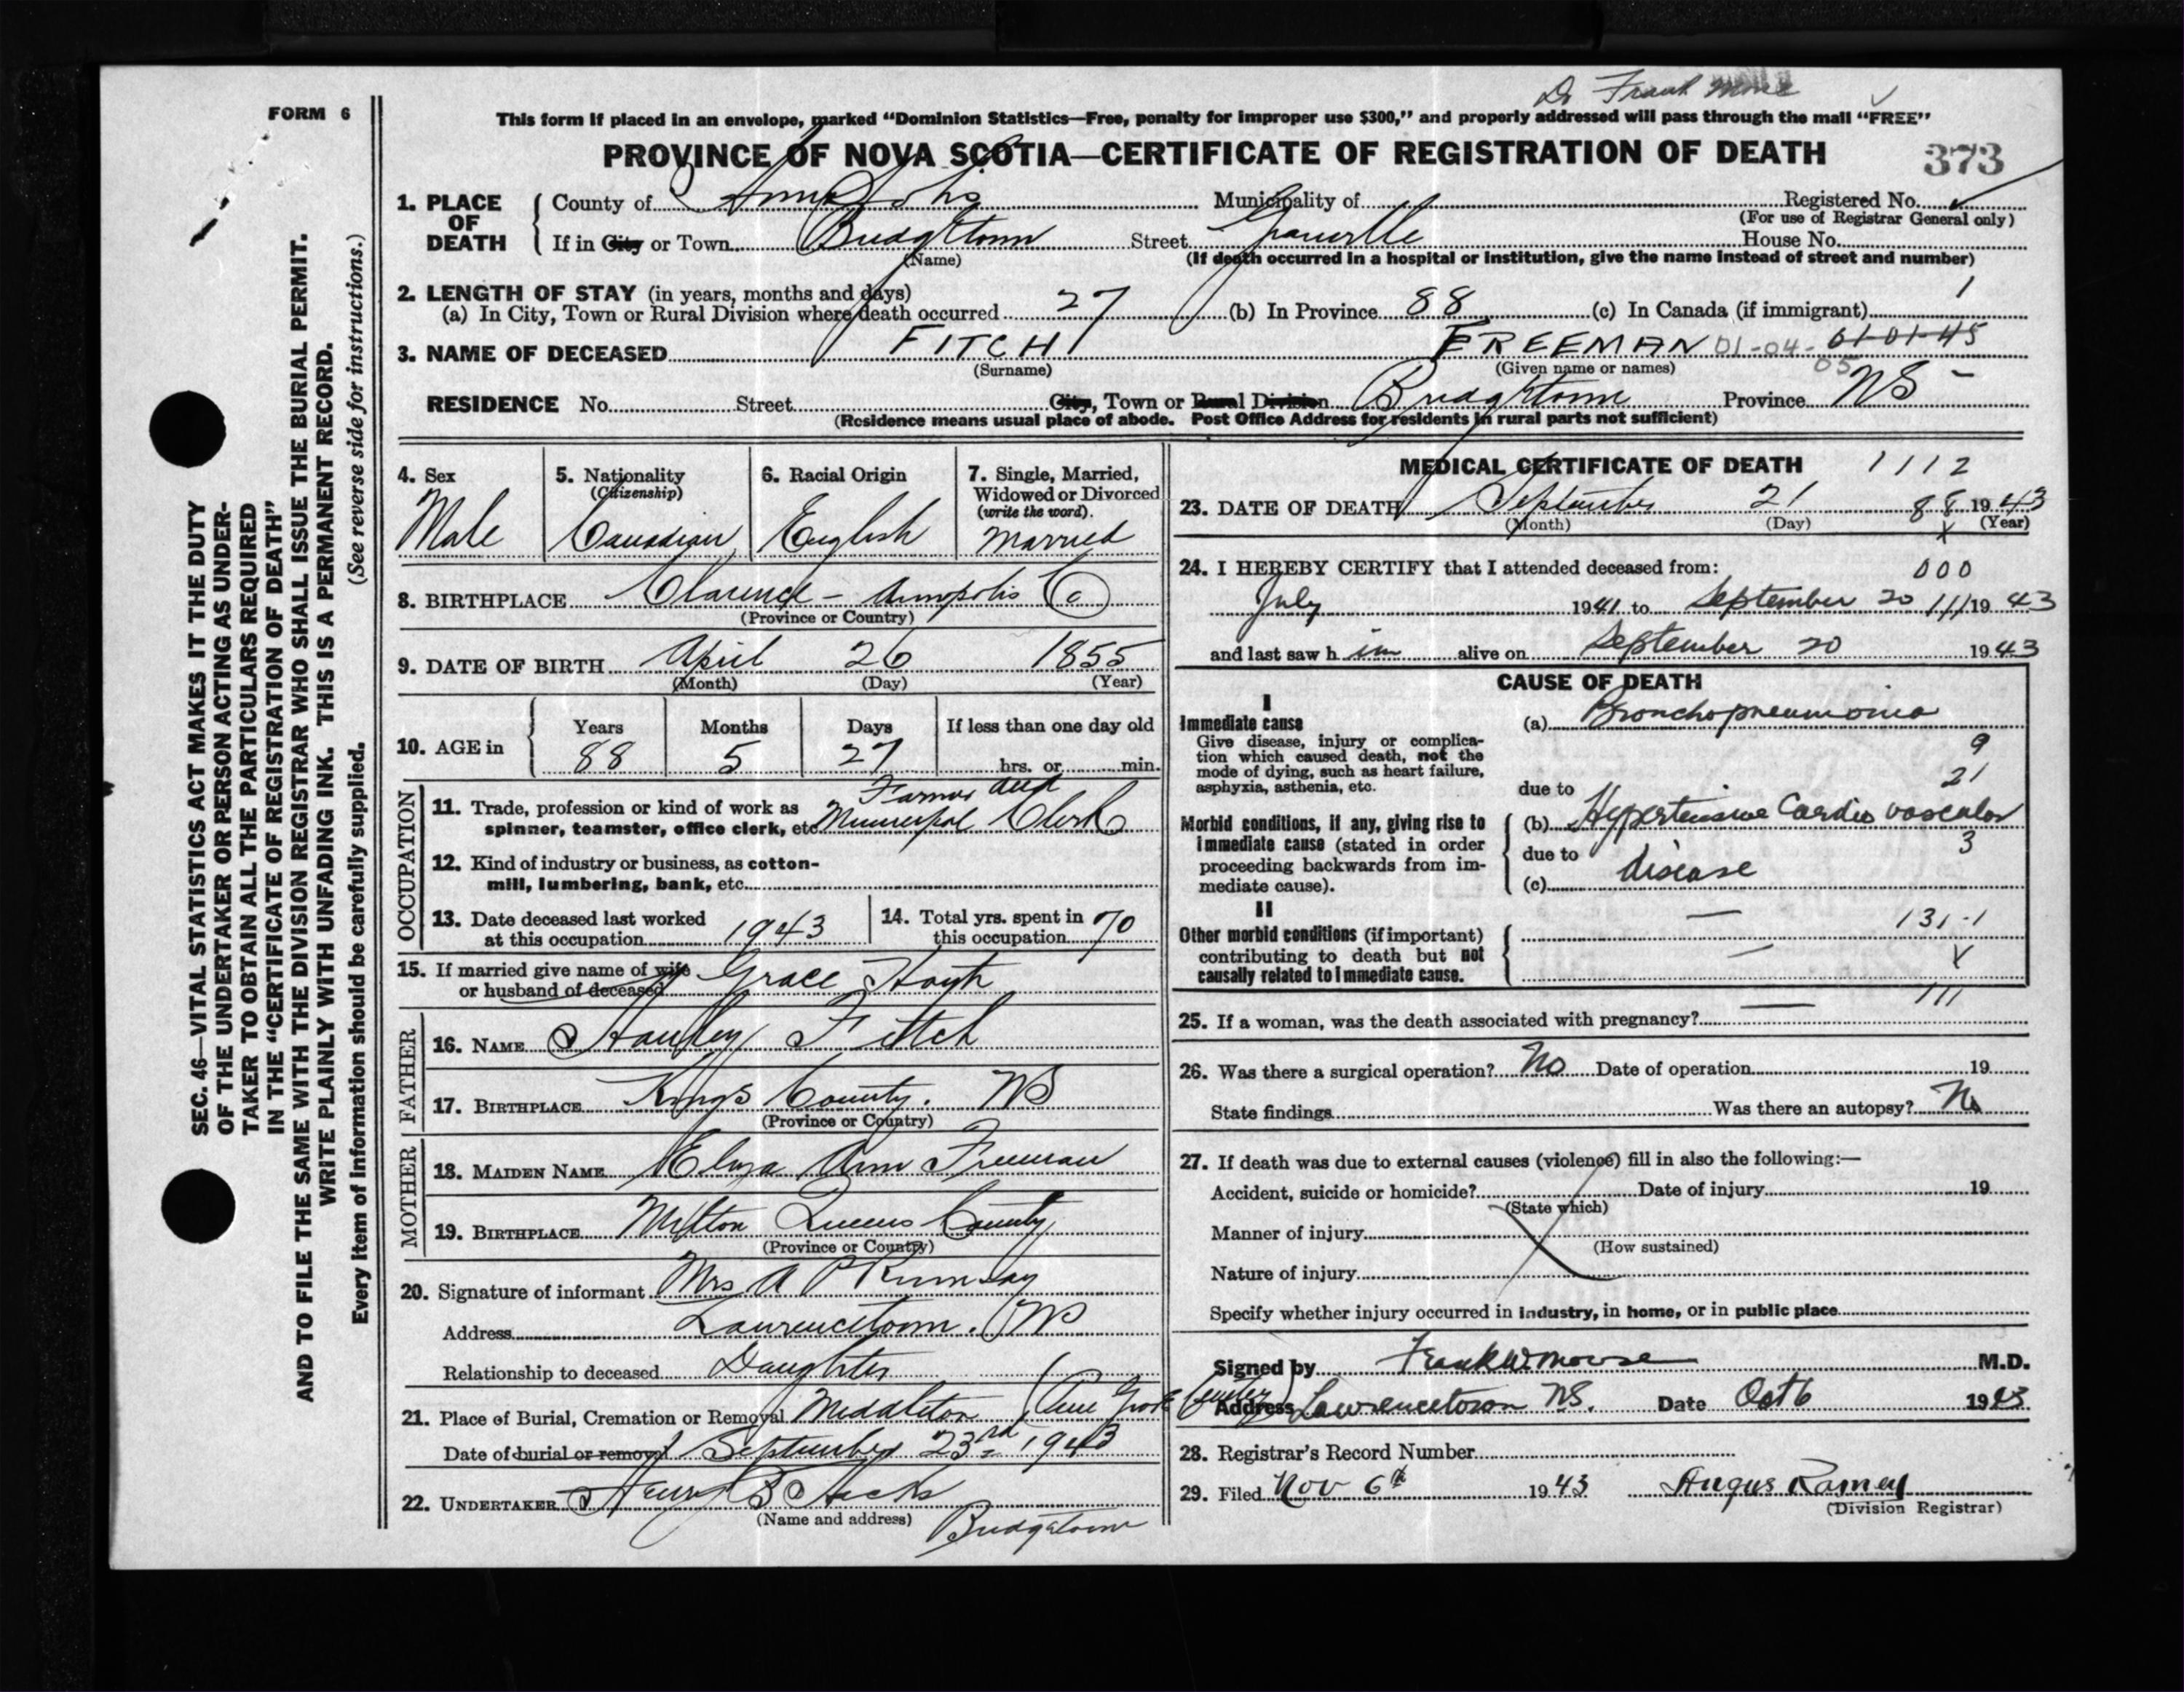 Dr Frank Morse
FORM 6
This form if placed in an envelope, marked “Dominion Statistics—Free, penalty for improper use $300,” and properly addressed will pass through the mail “FREE”
PROVINCE OF NOVA SCOTIA—CERTIFICATE OF REGISTRATION OF DEATH 373
1. PLACE OF DEATH County of Annapolis Municipality of Registered No.
(For use of Registrar General only)
If in City or Town Bridgetown Street Granville House No.
(Name) (If death occurred in a hospital or institution, give the name instead of street and number)
2. LENGTH OF STAY (in years, months and days)
(a) In City, Town or Rural Division where death occurred 27 (b) In Province 88 (c) In Canada (if immigrant) 1
3. NAME OF DECEASED FITCH FREEMAN 01-04- 01-01-45
(Surname) (Given name or names) 05
RESIDENCE No. Street City, Town or Rural Division Bridgetown Province NS -
(Residence means usual place of abode. Post Office Address for residents in rural parts not sufficient)
4. Sex Male
5. Nationality (Citizenship) Canadian
6. Racial Origin English
7. Single, Married, Widowed or Divorced (write the word). Married
8. BIRTHPLACE Clarence - Annapolis Co
(Province or Country)
9. DATE OF BIRTH April 26 1855
(Month) (Day) (Year)
10. AGE in Years 88 Months 5 Days 27 If less than one day old hrs. or min.
OCCUPATION
11. Trade, profession or kind of work as Farmer and
spinner, teamster, office clerk, etc. Municipal Clerk
12. Kind of industry or business, as cotton-
mill, lumbering, bank, etc.
13. Date deceased last worked at this occupation 1943
14. Total yrs. spent in this occupation 70
15. If married give name of wife
or husband of deceased Grace Hoyt
FATHER
16. NAME Handley Fitch
17. BIRTHPLACE Kings County. NS
(Province or Country)
MOTHER
18. MAIDEN NAME Eliza Ann Freeman
19. BIRTHPLACE Milton Queens County
(Province or Country)
20. Signature of informant Mrs A P Rumsay
Address Lawrencetown. NS
Relationship to deceased Daughter
21. Place of Burial, Cremation or Removal Middleton (Pine Grove
Date of burial or removal September 23rd 1943
22. UNDERTAKER Henry B Hicks
(Name and address) Bridgetown
MEDICAL CERTIFICATE OF DEATH 1112
23. DATE OF DEATH September 21 88 1943
(Month) (Day) X (Year)
24. I HEREBY CERTIFY that I attended deceased from: 000
July 1941 to September 20 111 1943
and last saw him alive on September 20 1943
CAUSE OF DEATH
I
Immediate cause (a) Bronchopneumonia
Give disease, injury or complica-
tion which caused death, not the 9
mode of dying, such as heart failure, 21
asphyxia, asthenia, etc. due to
Morbid conditions, if any, giving rise to (b) Hypertensive Cardio vascular
immediate cause (stated in order
proceeding backwards from im- due to disease 3
mediate cause). (c)
II
Other morbid conditions (if important) — 131-1
contributing to death but not —
causally related to immediate cause. X
111
25. If a woman, was the death associated with pregnancy? —
26. Was there a surgical operation? No Date of operation 19
State findings Was there an autopsy? No
27. If death was due to external causes (violence) fill in also the following:—
Accident, suicide or homicide? Date of injury 19
(State which)
Manner of injury
(How sustained)
Nature of injury
Specify whether injury occurred in industry, in home, or in public place
Signed by Frank W. Morse M.D.
Address Lawrencetown NS. Date Oct 6 1943
28. Registrar's Record Number
29. Filed Nov 6th 1943 Angus Ramey
(Division Registrar)
SEC. 46—VITAL STATISTICS ACT MAKES IT THE DUTY
OF THE UNDERTAKER OR PERSON ACTING AS UNDER-
TAKER TO OBTAIN ALL THE PARTICULARS REQUIRED
IN THE “CERTIFICATE OF REGISTRATION OF DEATH”
AND TO FILE THE SAME WITH THE DIVISION REGISTRAR WHO SHALL ISSUE THE BURIAL PERMIT.
WRITE PLAINLY WITH UNFADING INK. THIS IS A PERMANENT RECORD.
Every item of information should be carefully supplied. (See reverse side for instructions.)